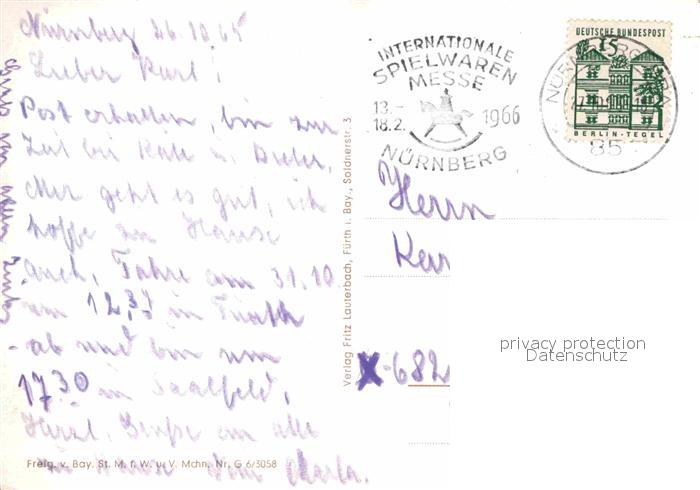 Nürnberg 26.10.65
Lieber Karl!
Post erhalten, bin zur
Zeit bei Käte u. Dieter,
Mir geht es gut, ich
hoffe zu Hause
auch, Fahre am 31.10.
um 12,37 in Fürth
ab und bin um
17,30 in Saalfeld,
Herzl. Grüße an alle
zu Hause
Freig. v. Bay. St. M. f. W. u. V. Mchn. Nr. G 6/3058
Verlag Fritz Lauterbach, Fürth i. Bay., Soldnerstr. 3
INTERNATIONALE
SPIELWAREN
MESSE
13.-
18.2. 1966
NÜRNBERG
DEUTSCHE BUNDESPOST
15
BERLIN-TEGEL
85
Herrn
X-682
privacy protection
Datenschutz